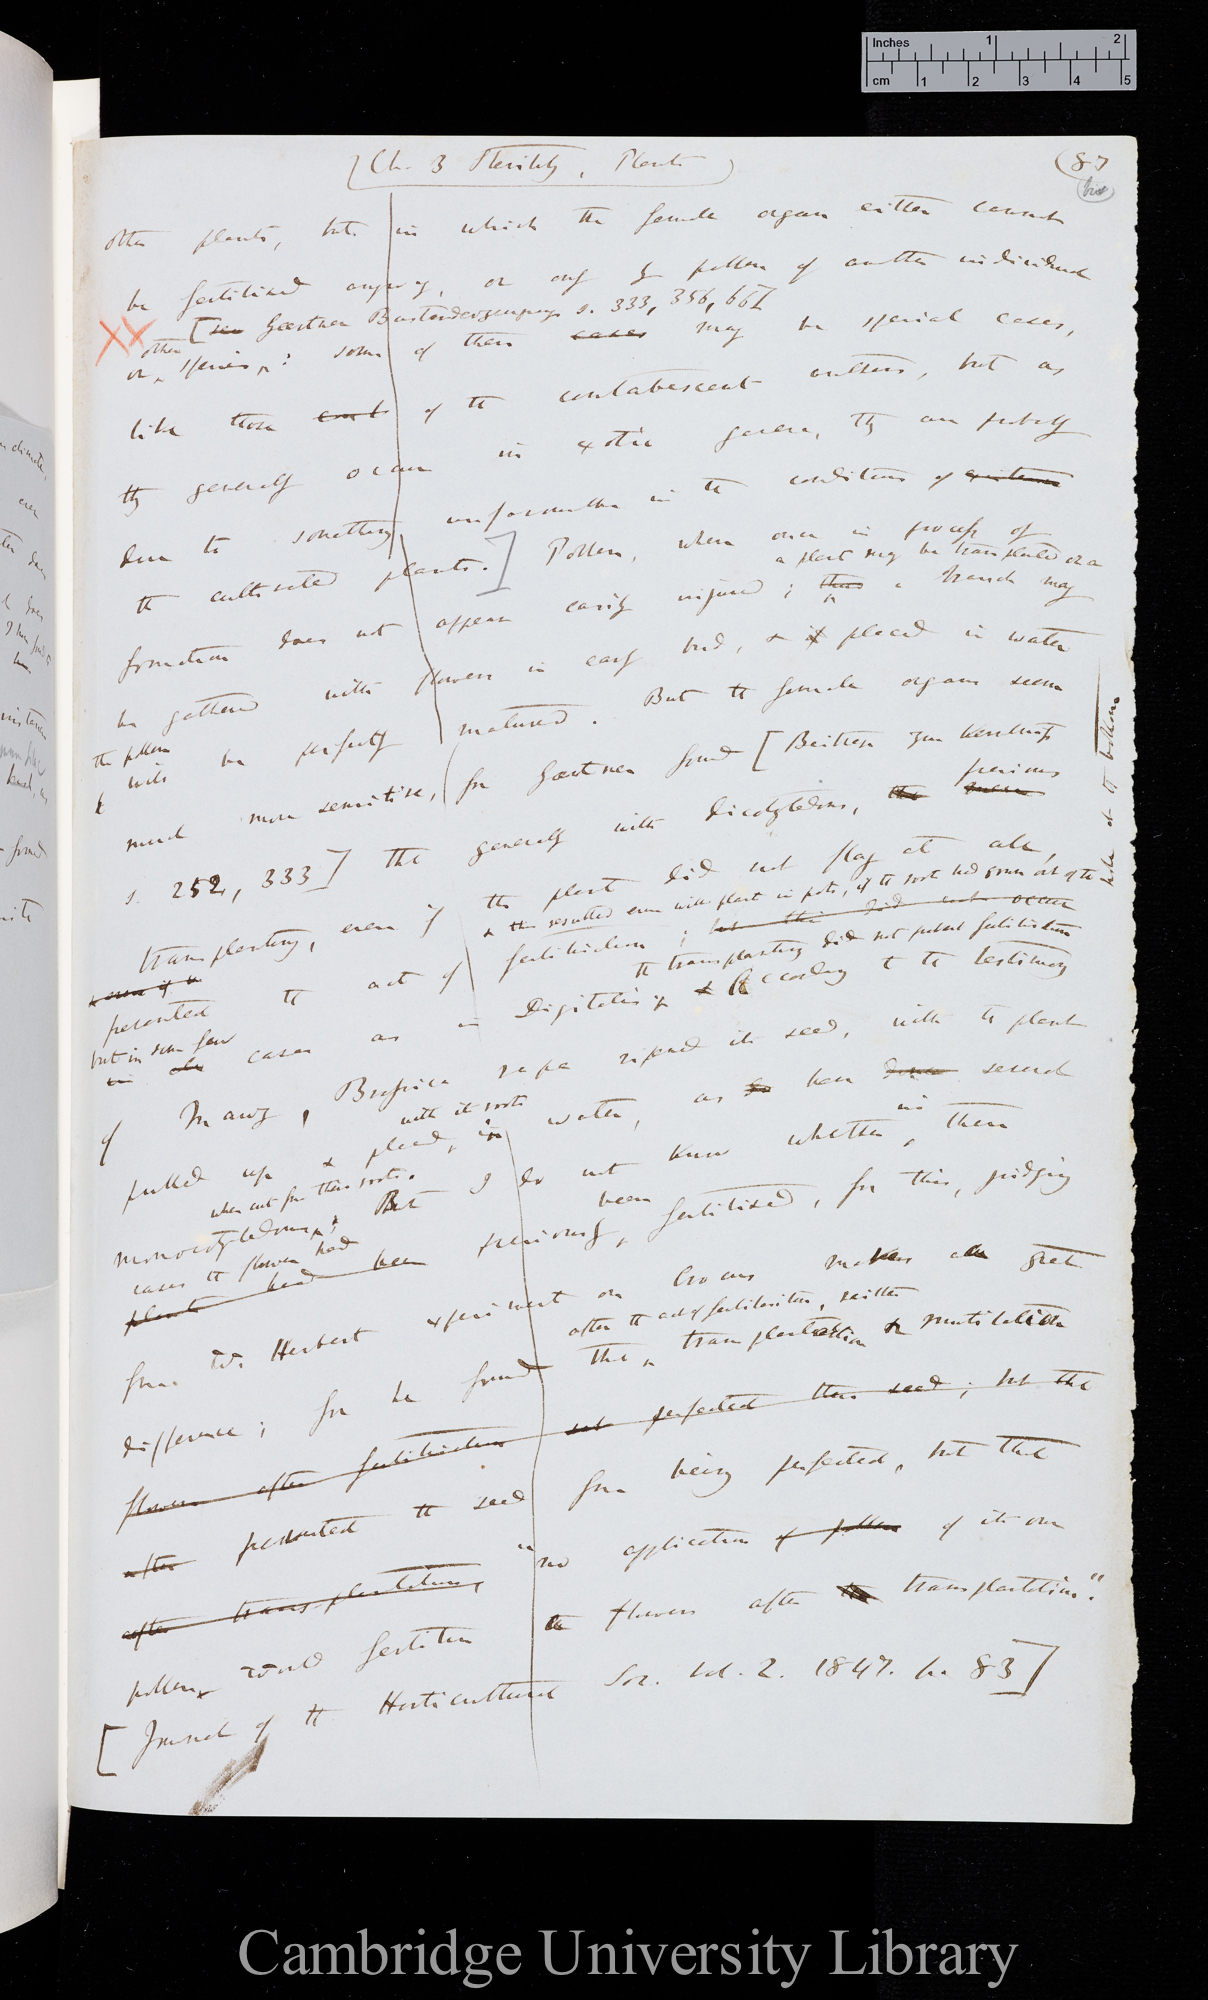 Inches 1 2
cm 1 2 3 4 5
(Ch. 3 Sterility, Plants)
(87
(bis)
other plants, but in which the female organs either cannot
be fertilised anyway, or only by pollen of another individual
XX [see Gaertner Bastarderzeugung s. 333, 356, 661
or other species; some of these cases may be special cases,
like those of the contabescent anthers, but as
they generally occur in exotic genera, they are probably
due to something unfavourable in the conditions of existence
the cultivated plants.] Pollen, when once in process of
a plant may be transplanted or a
formation does not appear easily injured; thus a branch may
be gathered with flowers in early bud, & if placed in water
the pollen
will be perfectly matured. But the female organs seem
much more sensitive, for Gaertner found [Beitrage zur Kenntniss
previous
s. 252, 333] that generally with dicotyledons, that
transplanting, even if the plant did not flag at all,
& this resulted even with plant in pots, if the root had grown out of the
hole at the bottom
& even if a
prevented the act of fertilisation; but this did not occur
the transplanting did not prevent fertilisation
but in some few
in cases as in Digitalis; & According to the testimony
of Mauz, Brassica rapa ripened its seed, with the plant
with its roots
pulled up & placed, in water, as so have several
when cut from their roots.
monocotyledons; But I do not know whether, in these
cases the flowers had been
plants had been previously, fertilised, for this, judging
from W. Herbert experiment on Crocus makes a great
after the act of fertilisation, neither
difference; for he found that, transplantation or mutilation
flowers after fertilisation perfected their seed; but that
after prevented the seed from being perfected, but that
after transplantation, "no application of pollen of its own
pollen would fertilise the flowers after transplantation."
[Journal of the Horticultural Soc. vol. 2. 1847. p. 83]
Cambridge University Library